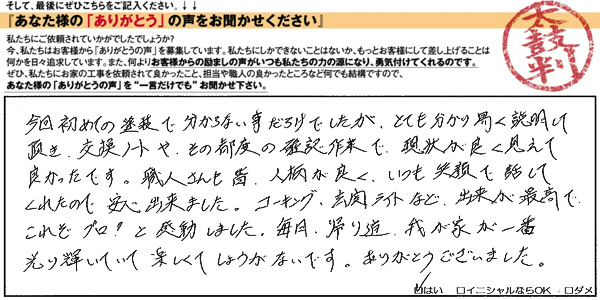 そして、最後にぜひこちらをご記入ください。↓↓
『あなた様の「ありがとう」の声をお聞かせください』
私たちにご依頼されていかがでしたでしょうか?
今、私たちはお客様から「ありがとうの声」を募集しています。私たちにしかできないことはないか、もっとお客様にして差し上げることは
何かを日々追求しています。また、何よりお客様からの励ましの声がいつも私たちの力の源になり、勇気付けてくれるのです。
ぜひ、私たちにお家の工事を依頼されて良かったこと、担当や職人の良かったところなど何でも結構ですので、
あなた様の「ありがとうの声」を“一言だけでも”お聞かせ下さい。
太鼓判
今回初めての塗装で分からない事だらけでしたが、とても分かり易く説明して
頂き、交換ノートや、その都度の確認作業で、現状が良く見えて
良かったです。職人さんも皆、人柄が良く、いつも笑顔で話して
くれたので安心出来ました。コーキング、玄関ライトなど、出来が最高で
これぞプロ!と感動しました。毎日、帰り道、我が家が一番
光り輝いていて楽しくてしょうがないです。ありがとうございました。
☑はい □イニシャルならOK □ダメ